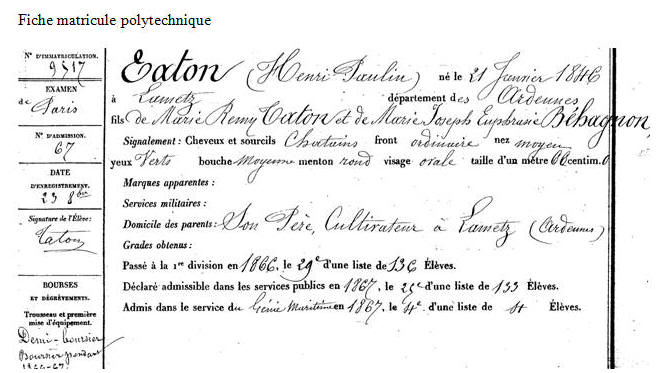 Fiche matricule polytechnique
N° D'IMMATRICULATION.
9517
EXAMEN
de Paris
N° D'ADMISSION.
67
DATE
D'ENREGISTREMENT.
23 8bre
Signature de l'Élève:
Taton
BOURSES
ET DÉGRÈVEMENTS.
Trousseau et première
mise d'équipement.
Demi-boursier
Boursier pendant
1866-67
Taton (Henri Paulin) né le 21 Janvier 1846
à Lametz département des Ardennes
fils de Marie Remy Taton et de Marie Joseph Euphrasie Béhagnon,
Signalement : Cheveux et sourcils Chatains front ordinaire nez moyen
yeux Verts bouche moyenne menton rond visage ovale taille d'un mètre 66 centim.
Marques apparentes :
Services militaires :
Domicile des parents: Son Père, Cultivateur à Lametz (Ardennes)
Grades obtenus :
Passé à la 1re division en 1866, le 29e d'une liste de 136 Élèves.
Déclaré admissible dans les services publics en 1867, le 25e d'une liste de 133 Élèves.
Admis dans le service du Génie Maritime en 1867, le 4e d'une liste de 4 Élèves.